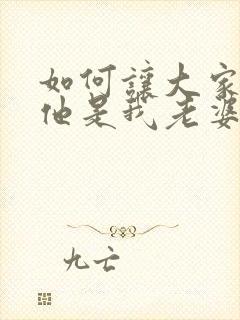 如何讓大家
他是我老婆
九亡